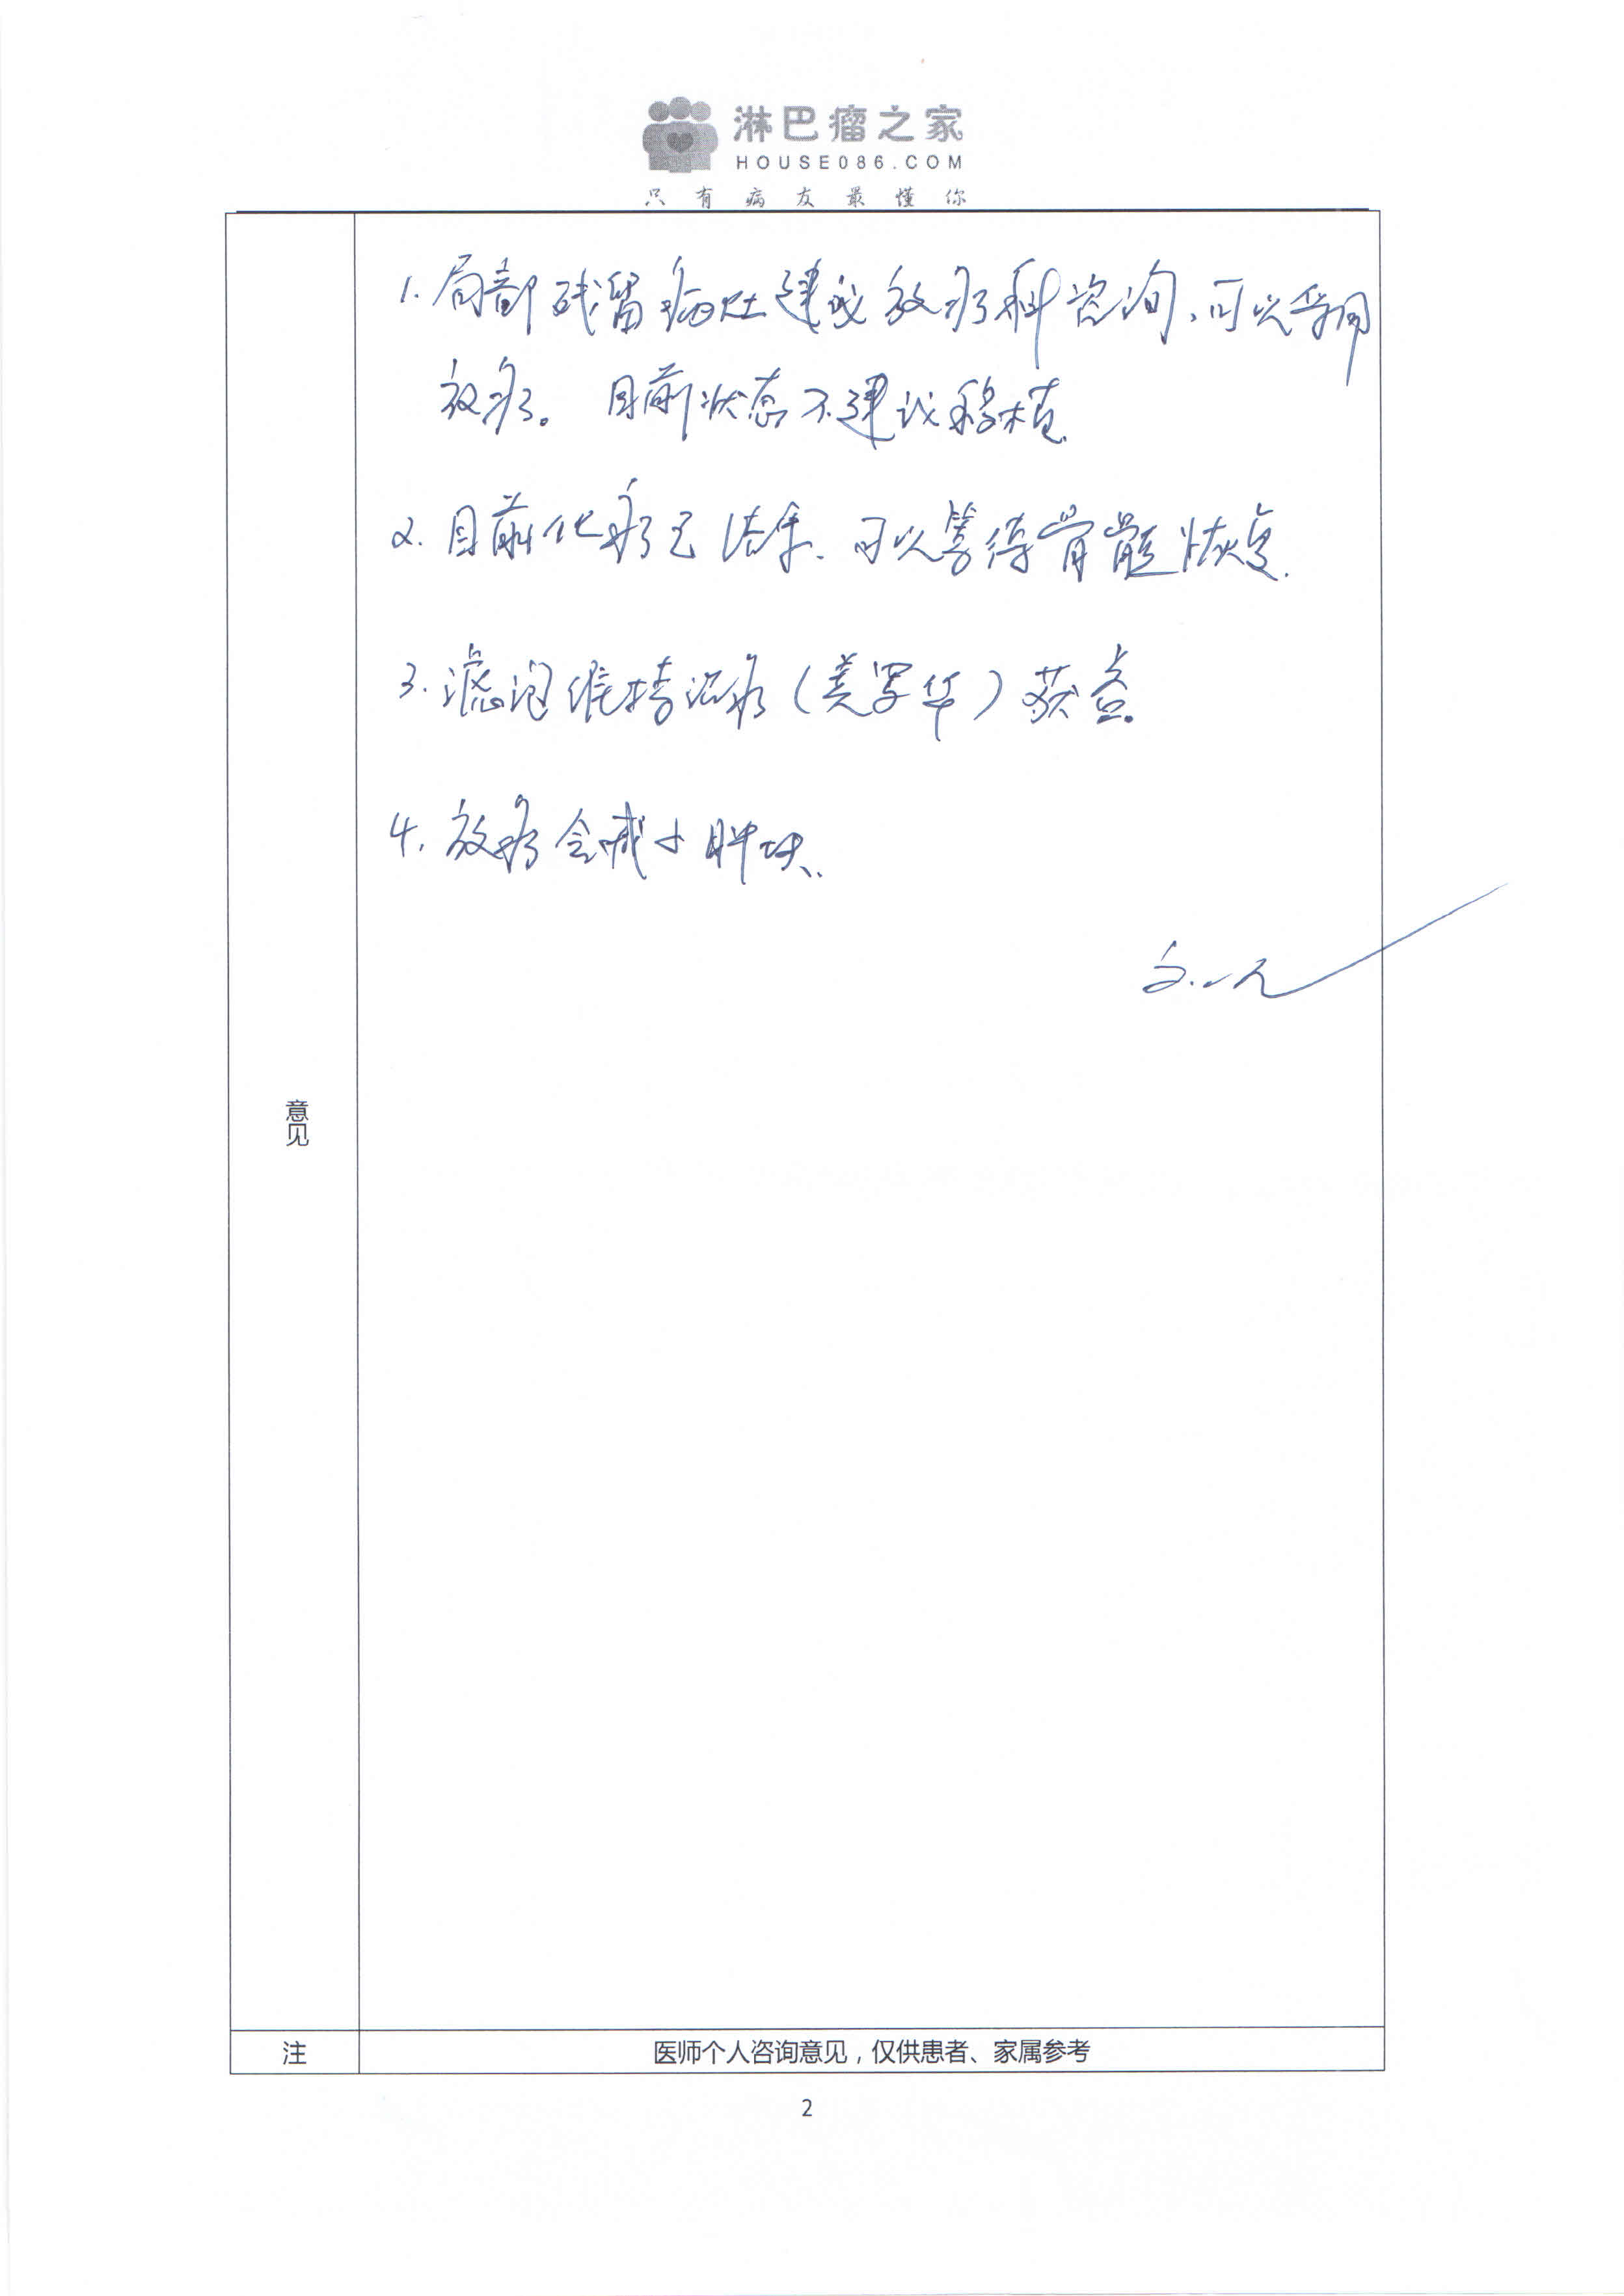 淋巴瘤之家
HOUSE086.COM
只有病友最懂你
1. 局部残留病灶建议放疗科咨询,可以采用
放疗。目前状态不建议移植
2. 目前化疗已结束,可以等待骨髓恢复.
3. 滤泡维持治疗(美罗华)获益。
4. 放疗会减小肿块.
意见
注
医师个人咨询意见,仅供患者、家属参考
2